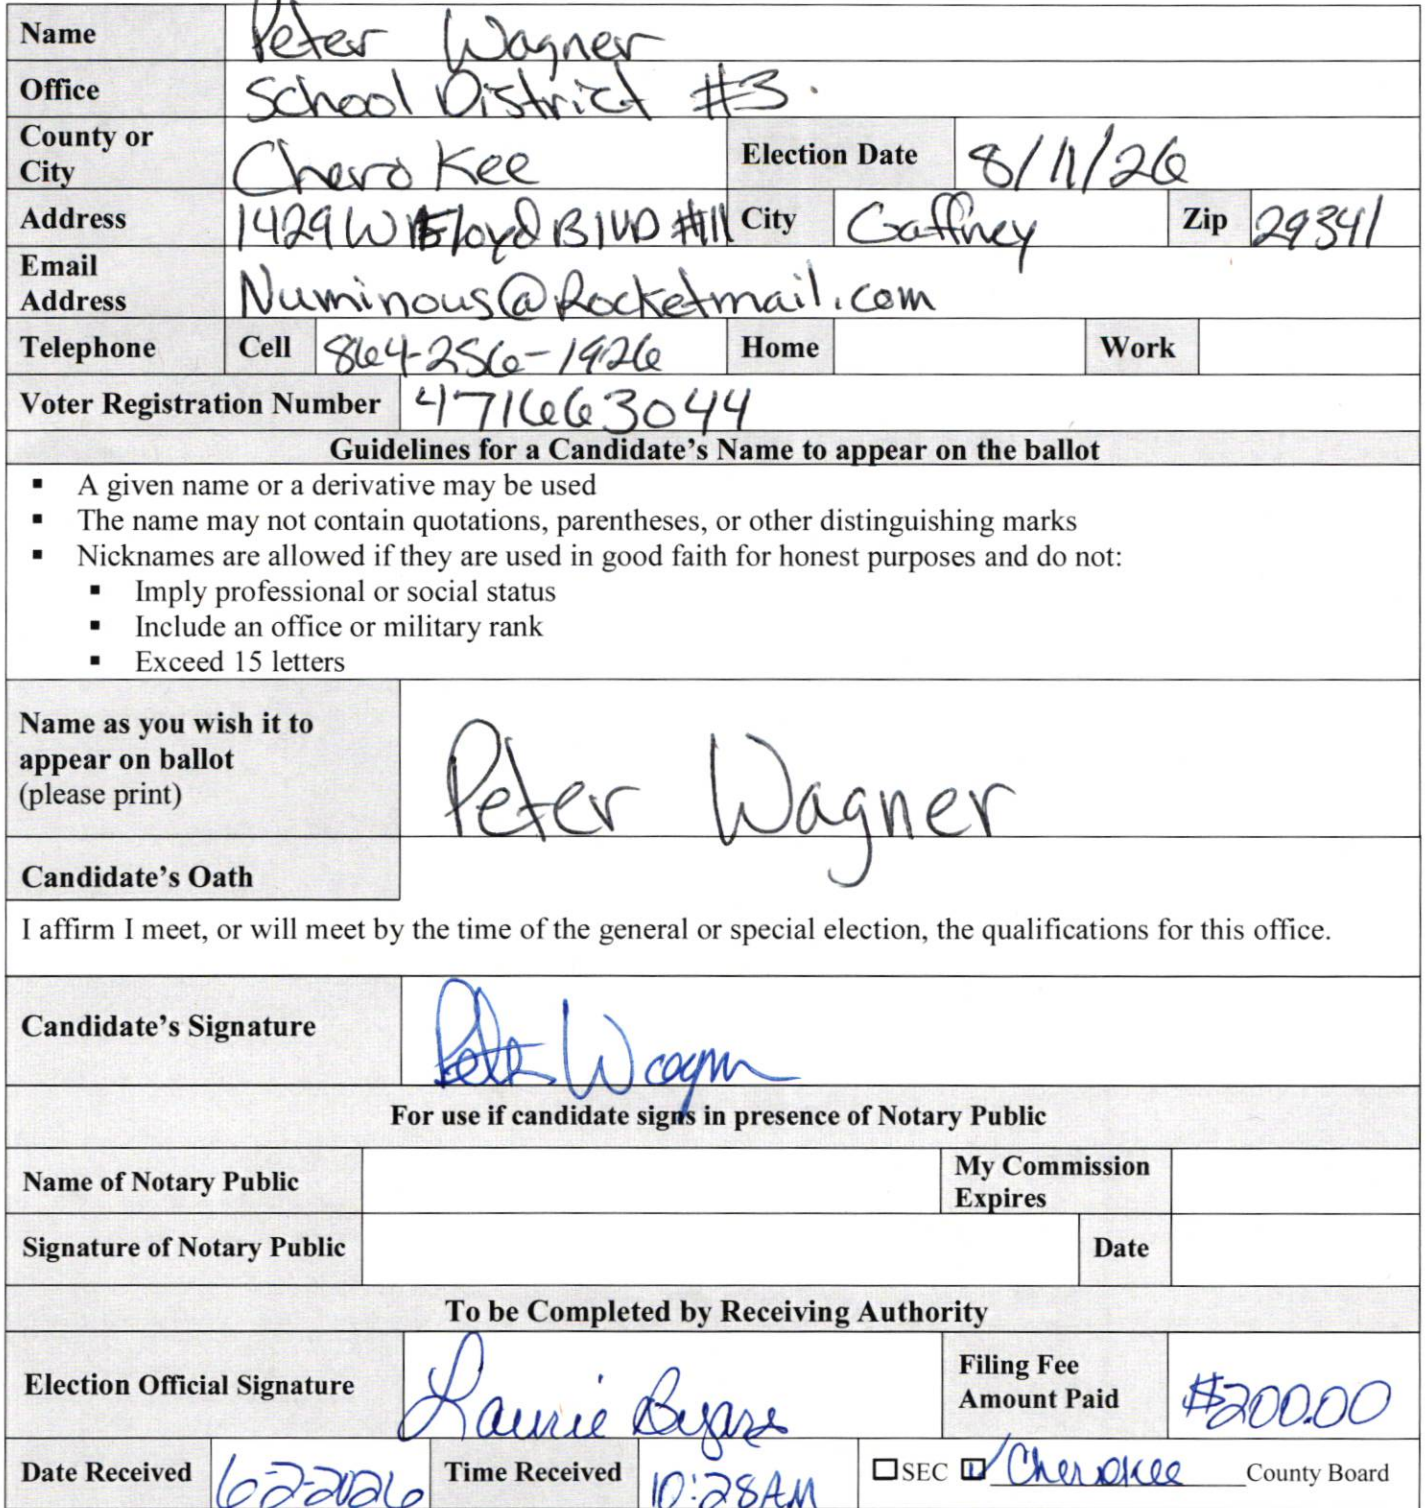 Name Peter Wagner
Office School District #3
County or City Cherokee Election Date 8/11/26
Address 1429 W Floyd Blvd #11 City Gaffney Zip 29341
Email Address Numinous@Rocketmail.com
Telephone Cell 864-256-1926 Home Work
Voter Registration Number 471663044
Guidelines for a Candidate's Name to appear on the ballot
▪ A given name or a derivative may be used
▪ The name may not contain quotations, parentheses, or other distinguishing marks
▪ Nicknames are allowed if they are used in good faith for honest purposes and do not:
▪ Imply professional or social status
▪ Include an office or military rank
▪ Exceed 15 letters
Name as you wish it to
appear on ballot
(please print)
Peter Wagner
Candidate's Oath
I affirm I meet, or will meet by the time of the general or special election, the qualifications for this office.
Candidate's Signature Peter Wagner
For use if candidate signs in presence of Notary Public
Name of Notary Public My Commission Expires
Signature of Notary Public Date
To be Completed by Receiving Authority
Election Official Signature Laurie Byars Filing Fee Amount Paid $200.00
Date Received 6-2-2026 Time Received 10:28AM ☐ SEC ☑ Cherokee County Board